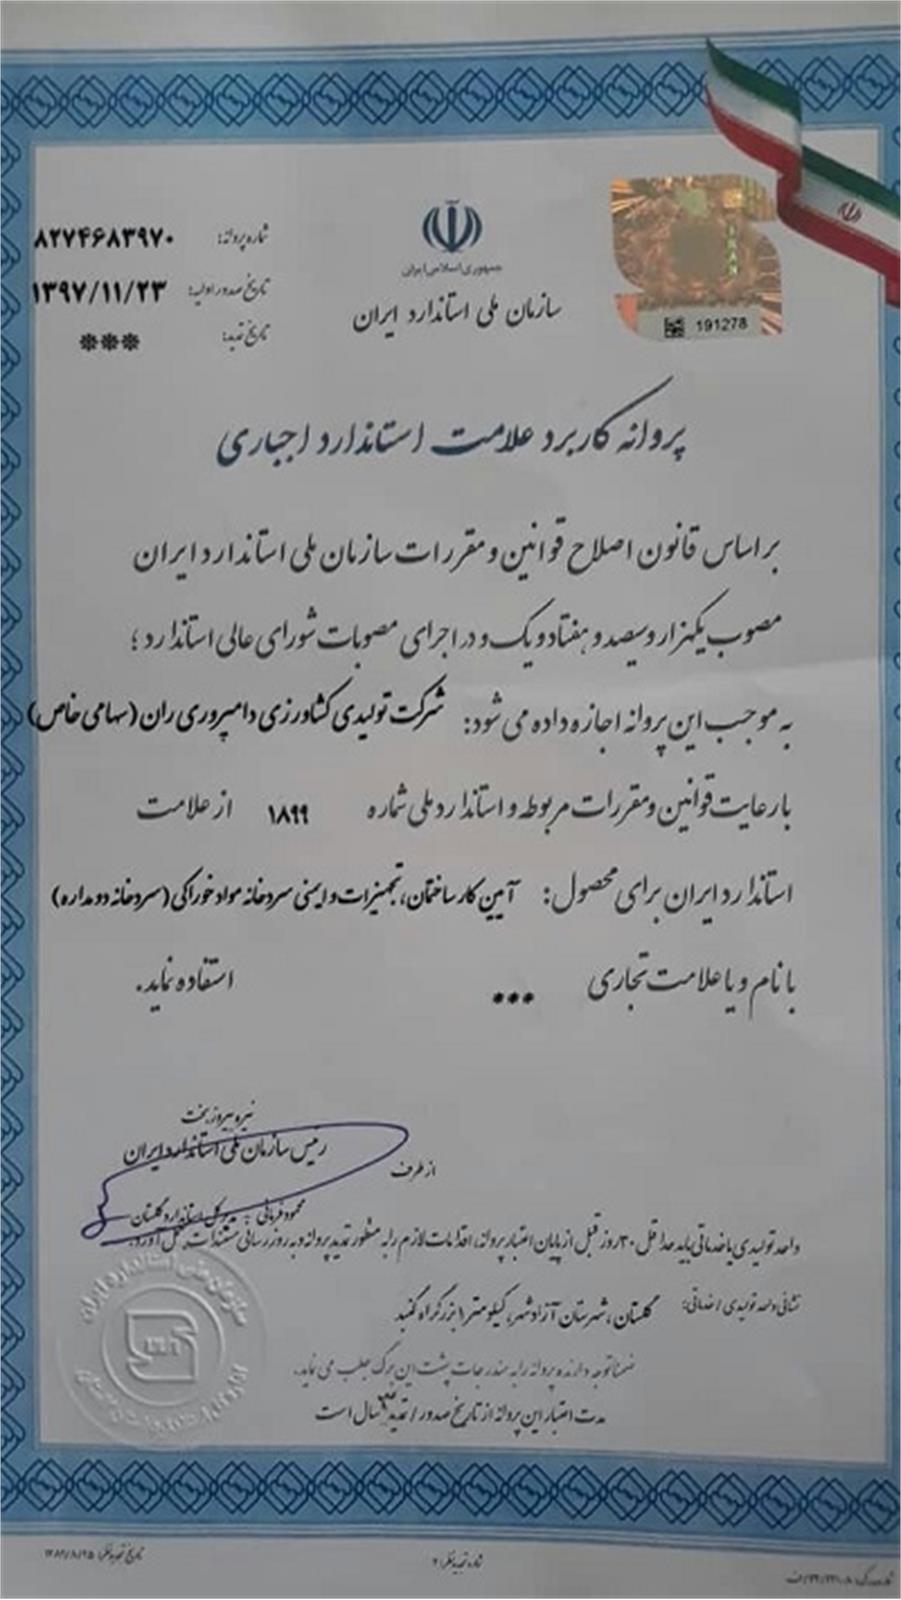 جمهوری اسلامی ایران
سازمان ملی استاندارد ایران
شماره پروانه: ۸۲۷۴۶۸۳۹۷۰
تاریخ صدور اولیه: ۱۳۹۷/۱۱/۲۳
تاریخ تمدید: ***
IRAN
191278
پروانه کاربرد علامت استاندارد اجباری
بر اساس قانون اصلاح قوانین و مقررات سازمان ملی استاندارد ایران
مصوب یکهزار و سیصد و هفتاد و یک و در اجرای مصوبات شورای عالی استاندارد؛
به موجب این پروانه اجازه داده می شود: شرکت تولیدی کشاورزی دامپروری ران (سهامی خاص)
با رعایت قوانین و مقررات مربوطه و استاندارد ملی شماره ۱۸۹۹ از علامت
استاندارد ایران برای محصول: آیین کار ساختمان، تجهیزات و ایمنی سردخانه مواد خوراکی (سردخانه دو مداره)
با نام و یا علامت تجاری ••• استفاده نماید.
نیره پیروزبخت
رئیس سازمان ملی استاندارد ایران
از طرف
محمود فرمانی - مدیرکل استاندارد گلستان
واحد تولیدی یا خدماتی باید حداقل ۳۰ روز قبل از پایان اعتبار پروانه، اقدامات لازم را به منظور تمدید پروانه و به روز رسانی مستندات بعمل آورد.
نشانی واحد تولیدی / خدماتی: گلستان، شهرستان آزادشهر، کیلومتر ۱ بزرگراه گنبد
ضمنا توجه دارنده پروانه را به مندرجات پشت این برگ جلب می نماید.
مدت اعتبار این پروانه از تاریخ صدور / تمدید سال است
شماره تجدید نظر: ۲